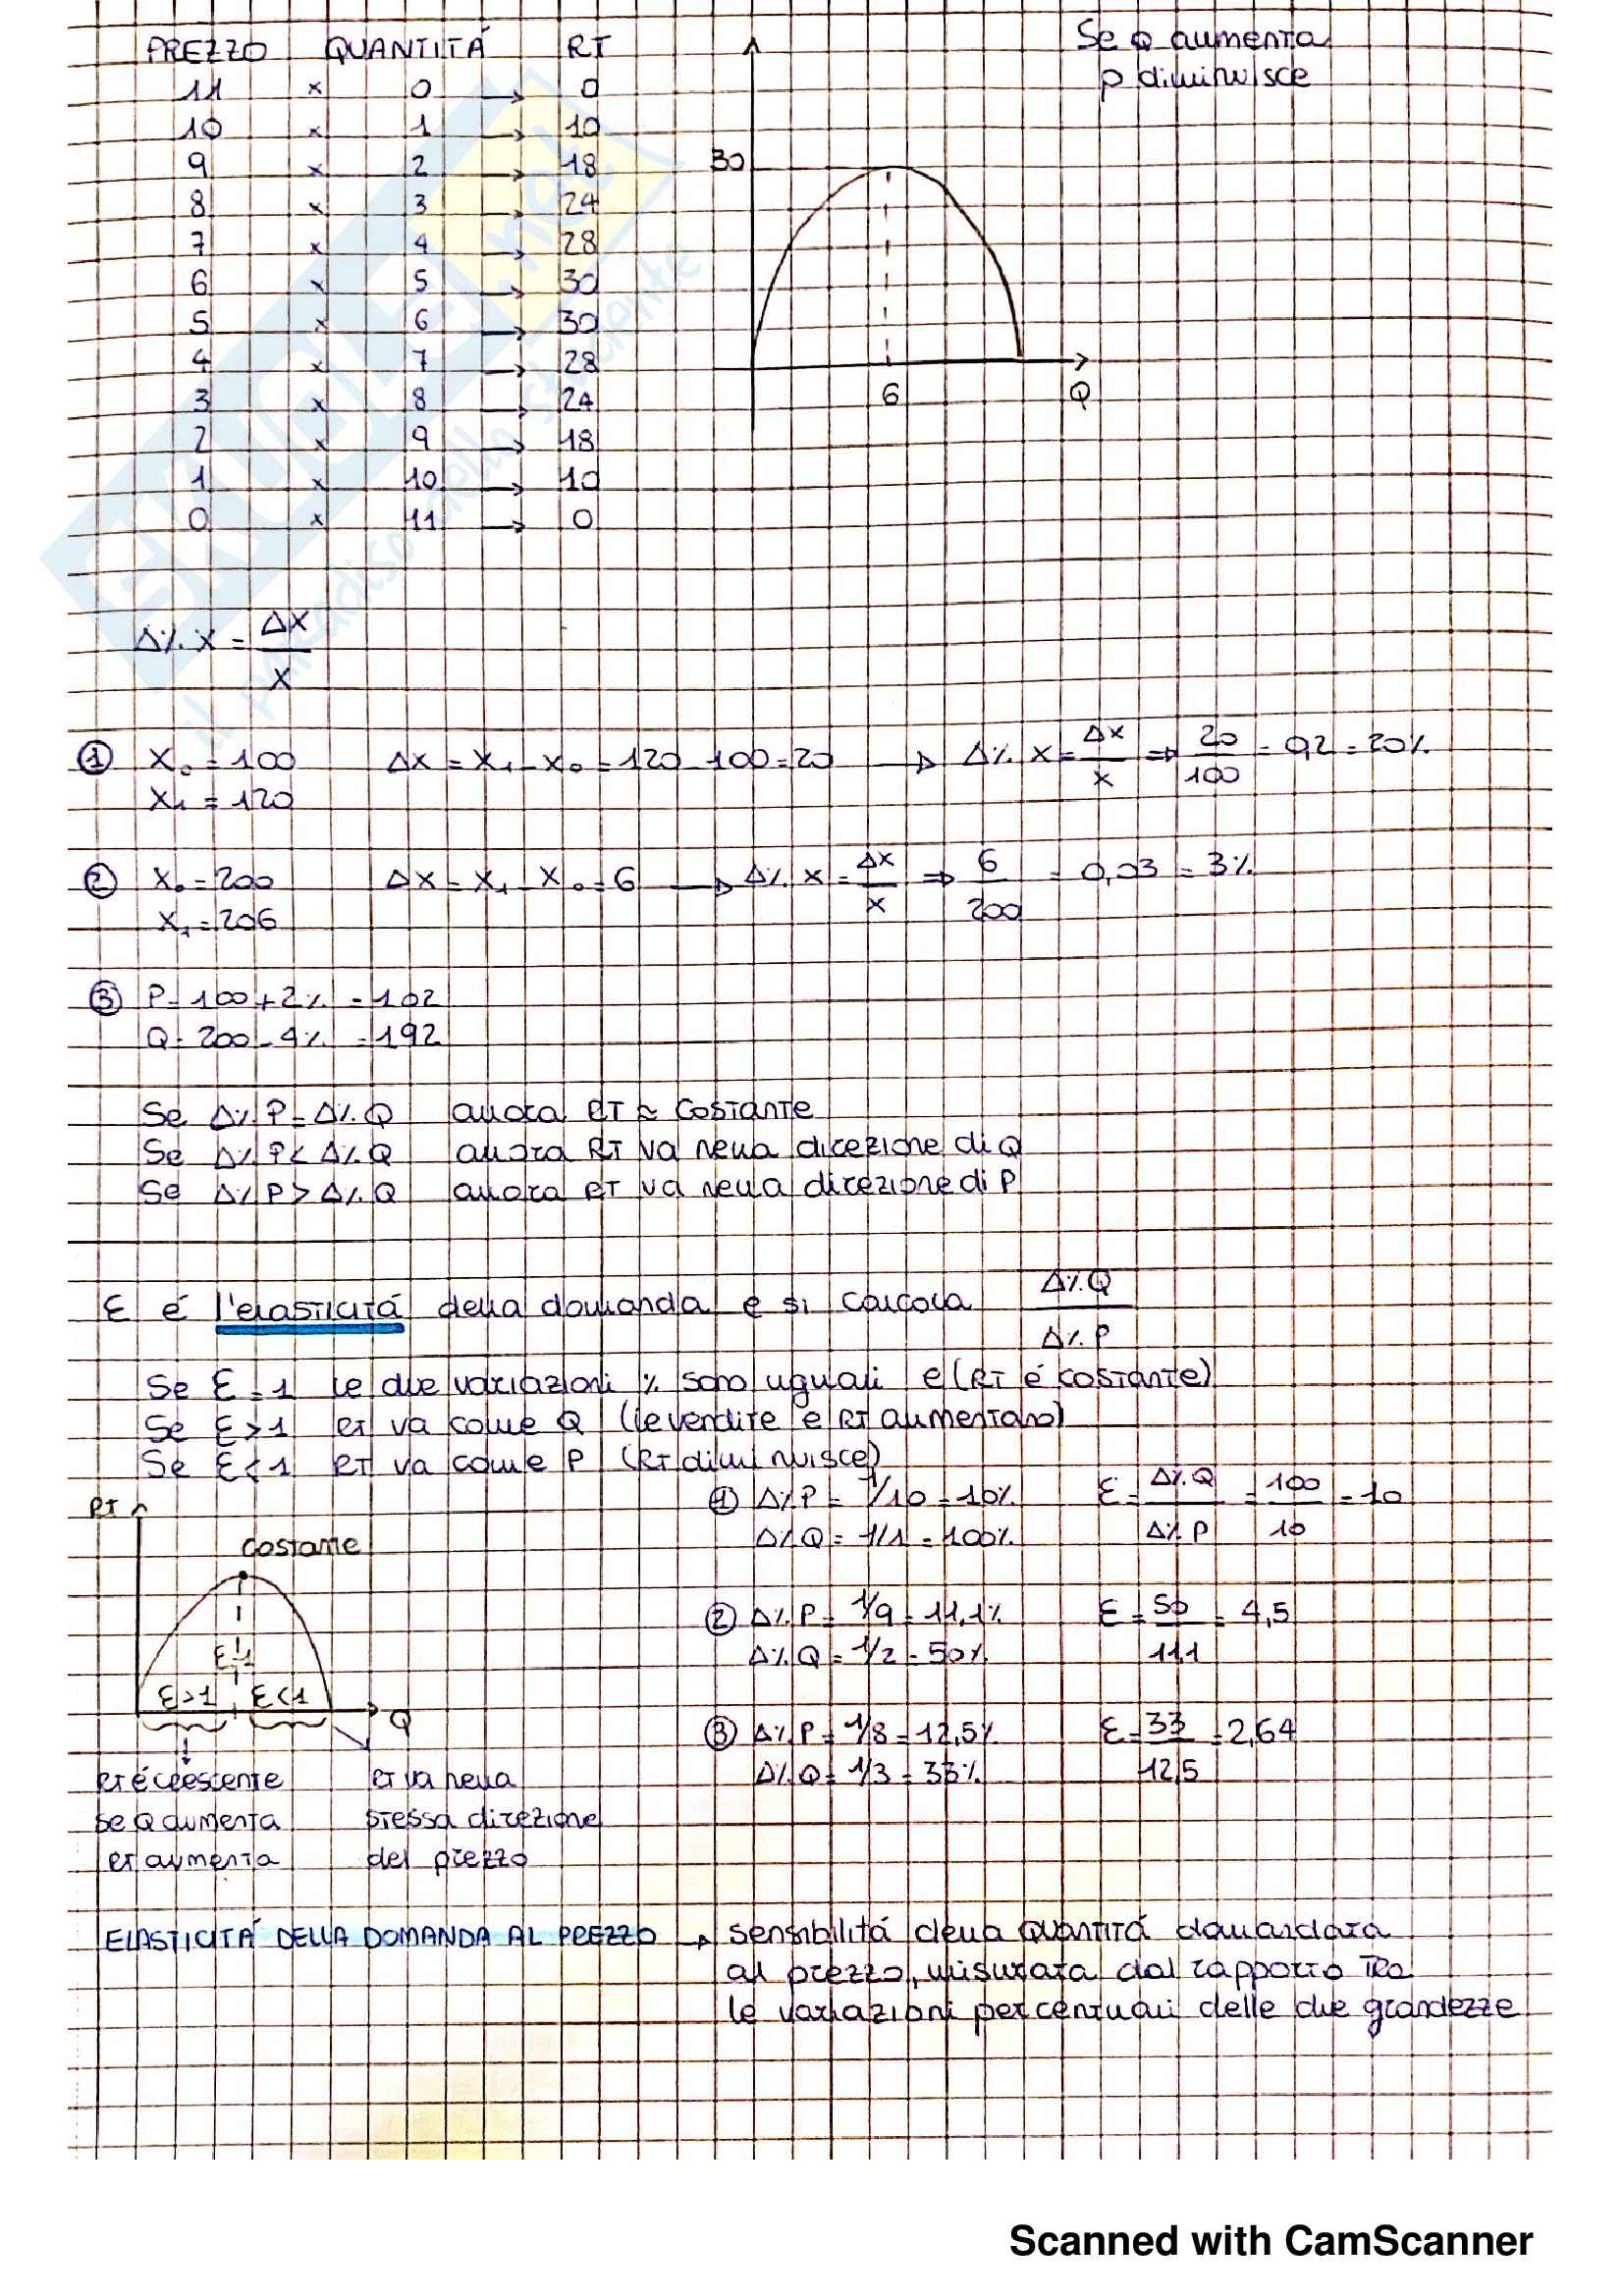 PREZZO QUANTITÁ RT
11 x 0 → 0
10 x 1 → 10
9 x 2 → 18
8 x 3 → 24
7 x 4 → 28
6 x 5 → 30
5 x 6 → 30
4 x 7 → 28
3 x 8 → 24
2 x 9 → 18
1 x 10 → 10
0 x 11 → 0
Se Q aumenta
p diminuisce
30
6 Q
SKUOLA.net
il paradiso dello studente
Δ% X = ΔX / X
① X₀ = 100 ΔX = X₁ - X₀ = 120 - 100 = 20 → Δ% X = ΔX / X ⇒ 20 / 100 = 0,2 = 20%
X₁ = 120
② X₀ = 200 ΔX = X₁ - X₀ = 6 → Δ% X = ΔX / X ⇒ 6 / 200 = 0,03 = 3%
X₁ = 206
③ P = 100 + 2% = 102
Q = 200 - 4% = 192
Se Δ% P = Δ% Q allora RT è costante
Se Δ% P < Δ% Q allora RT va nella direzione di Q
Se Δ% P > Δ% Q allora RT va nella direzione di P
Ɛ é l'elasticitá della domanda e si calcola Δ% Q / Δ% P
Se Ɛ = 1 le due variazioni % sono uguali e (RT é costante)
Se Ɛ > 1 RT va come Q (le vendite e RT aumentano)
Se Ɛ < 1 RT va come P (RT diminuisce)
RT
costante
Ɛ=1
Ɛ>1 Ɛ<1
Q
RT é crescente
se Q aumenta
RT aumenta
RT va nella
stessa direzione
del prezzo
① Δ% P = 1/10 = 10% Ɛ = Δ% Q / Δ% P = 100 / 10 = 10
Δ% Q = 1/1 = 100%
② Δ% P = 1/9 = 11,1% Ɛ = 50 / 11,1 = 4,5
Δ% Q = 1/2 = 50%
③ Δ% P = 1/8 = 12,5% Ɛ = 33 / 12,5 = 2,64
Δ% Q = 1/3 = 33%
ELASTICITÁ DELLA DOMANDA AL PREZZO → sensibilitá della quantitá domandata
al prezzo, misurata dal rapporto tra
le variazioni percentuali delle due grandezze
Scanned with CamScanner